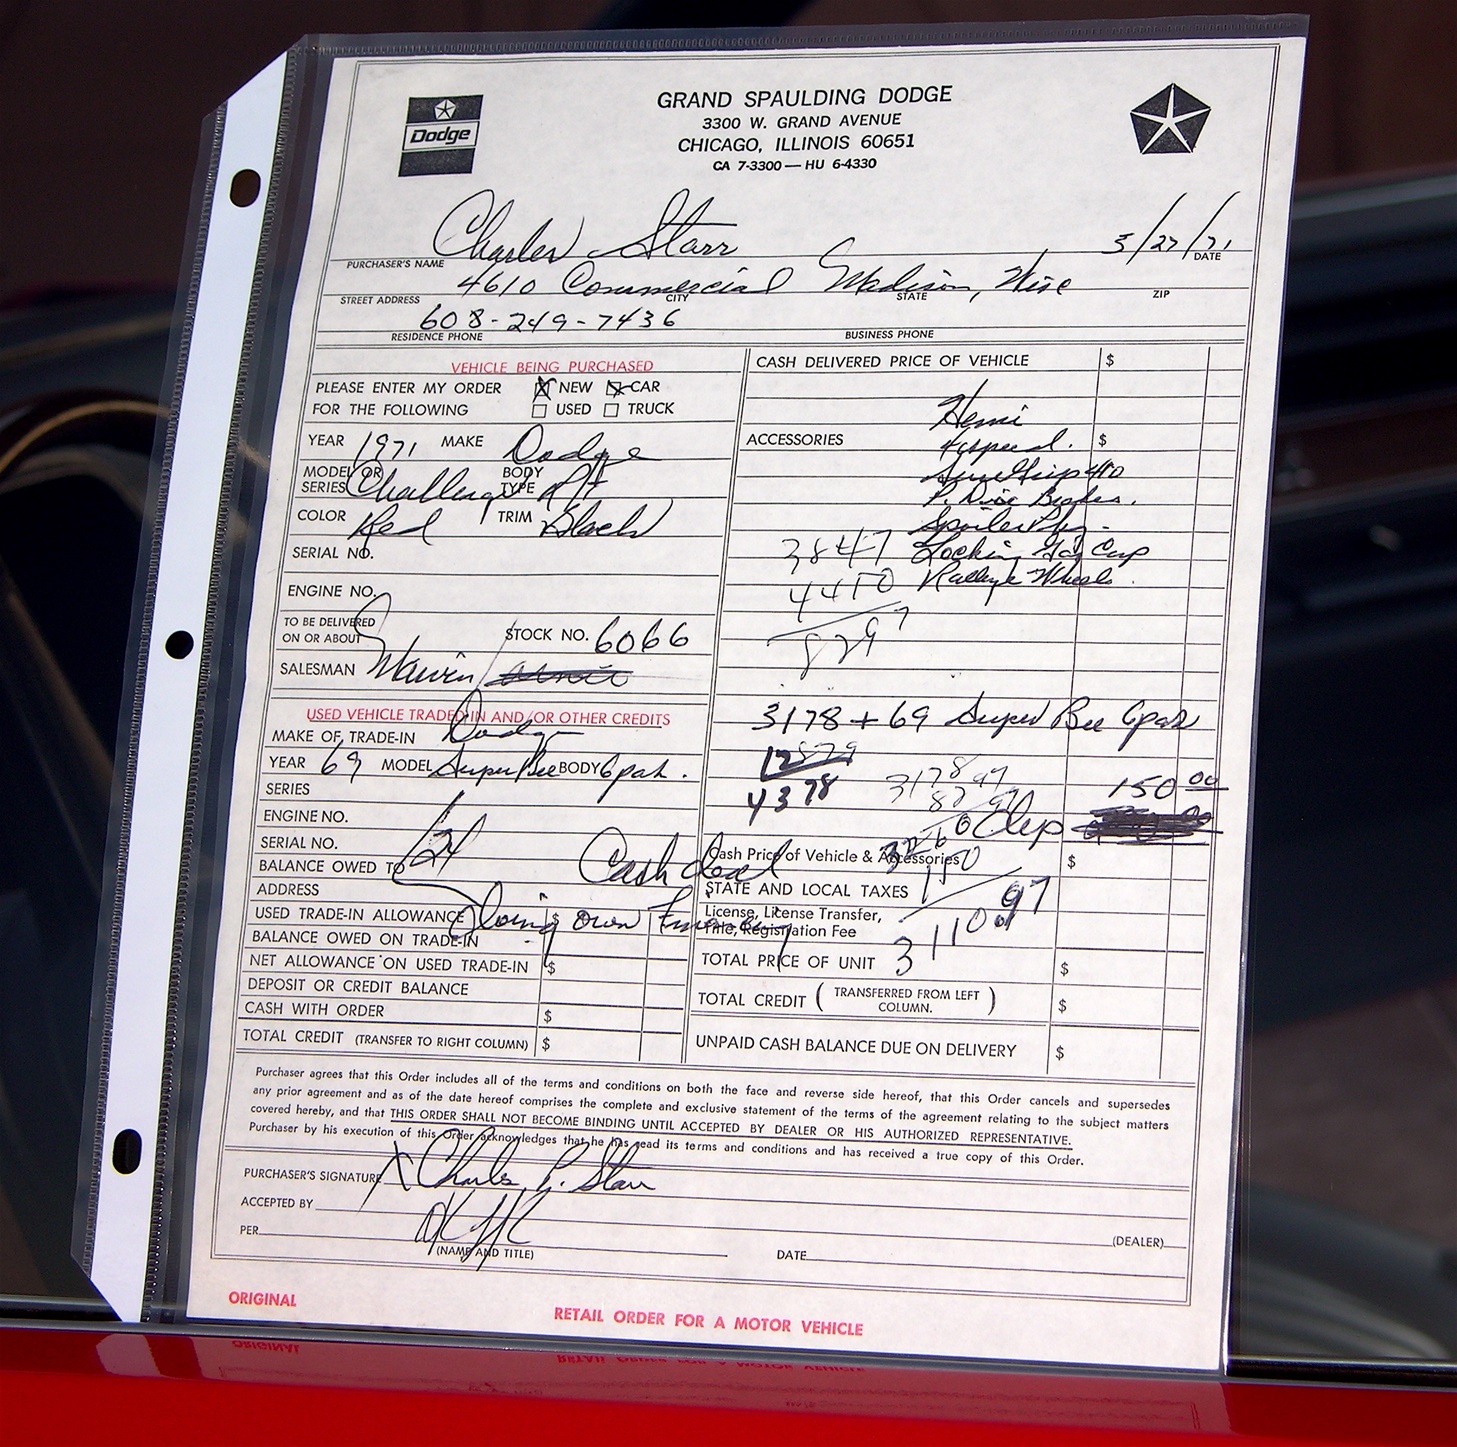 GRAND SPAULDING DODGE
Dodge
3300 W. GRAND AVENUE
CHICAGO, ILLINOIS 60651
CA 7-3300 — HU 6-4330
Charles Starr 3/27/71
PURCHASER'S NAME DATE
4610 Commercial Madison, Wisc
STREET ADDRESS CITY STATE ZIP
608-249-7436
RESIDENCE PHONE BUSINESS PHONE
VEHICLE BEING PURCHASED
PLEASE ENTER MY ORDER NEW CAR
FOR THE FOLLOWING USED TRUCK
YEAR 1971 MAKE Dodge
MODEL OR SERIES Challenger BODY TYPE R/T
COLOR Red TRIM Black
SERIAL NO.
ENGINE NO.
TO BE DELIVERED ON OR ABOUT STOCK NO. 6066
SALESMAN
USED VEHICLE TRADED-IN AND/OR OTHER CREDITS
MAKE OF TRADE-IN Dodge
YEAR 69 MODEL Super Bee BODY 6pak.
SERIES
ENGINE NO.
SERIAL NO.
BALANCE OWED TO Cash deal
ADDRESS
Doing own Financing
USED TRADE-IN ALLOWANCE $
BALANCE OWED ON TRADE-IN
NET ALLOWANCE ON USED TRADE-IN $
DEPOSIT OR CREDIT BALANCE
CASH WITH ORDER $
TOTAL CREDIT (TRANSFER TO RIGHT COLUMN) $
CASH DELIVERED PRICE OF VEHICLE $
Hemi
ACCESSORIES 4 speed. $
Sure Grip 410
P. Disc Brakes.
Spoiler Pkg.
3847 Locking Gas Cap
4450 Ralleye Wheels.
8297
3178 + 69 Super Bee 6pak
4378
150 00
Cash Price of Vehicle & Accessories $
150
STATE AND LOCAL TAXES
License, License Transfer,
Title, Registration Fee
3110.97
TOTAL PRICE OF UNIT $
TOTAL CREDIT (TRANSFERRED FROM LEFT COLUMN.) $
UNPAID CASH BALANCE DUE ON DELIVERY $
Purchaser agrees that this Order includes all of the terms and conditions on both the face and reverse side hereof, that this Order cancels and supersedes
any prior agreement and as of the date hereof comprises the complete and exclusive statement of the terms of the agreement relating to the subject matters
covered hereby, and that THIS ORDER SHALL NOT BECOME BINDING UNTIL ACCEPTED BY DEALER OR HIS AUTHORIZED REPRESENTATIVE.
Purchaser by his execution of this Order acknowledges that he has read its terms and conditions and has received a true copy of this Order.
PURCHASER'S SIGNATURE X Charles P. Starr
ACCEPTED BY
PER (DEALER)
(NAME AND TITLE) DATE
ORIGINAL
RETAIL ORDER FOR A MOTOR VEHICLE